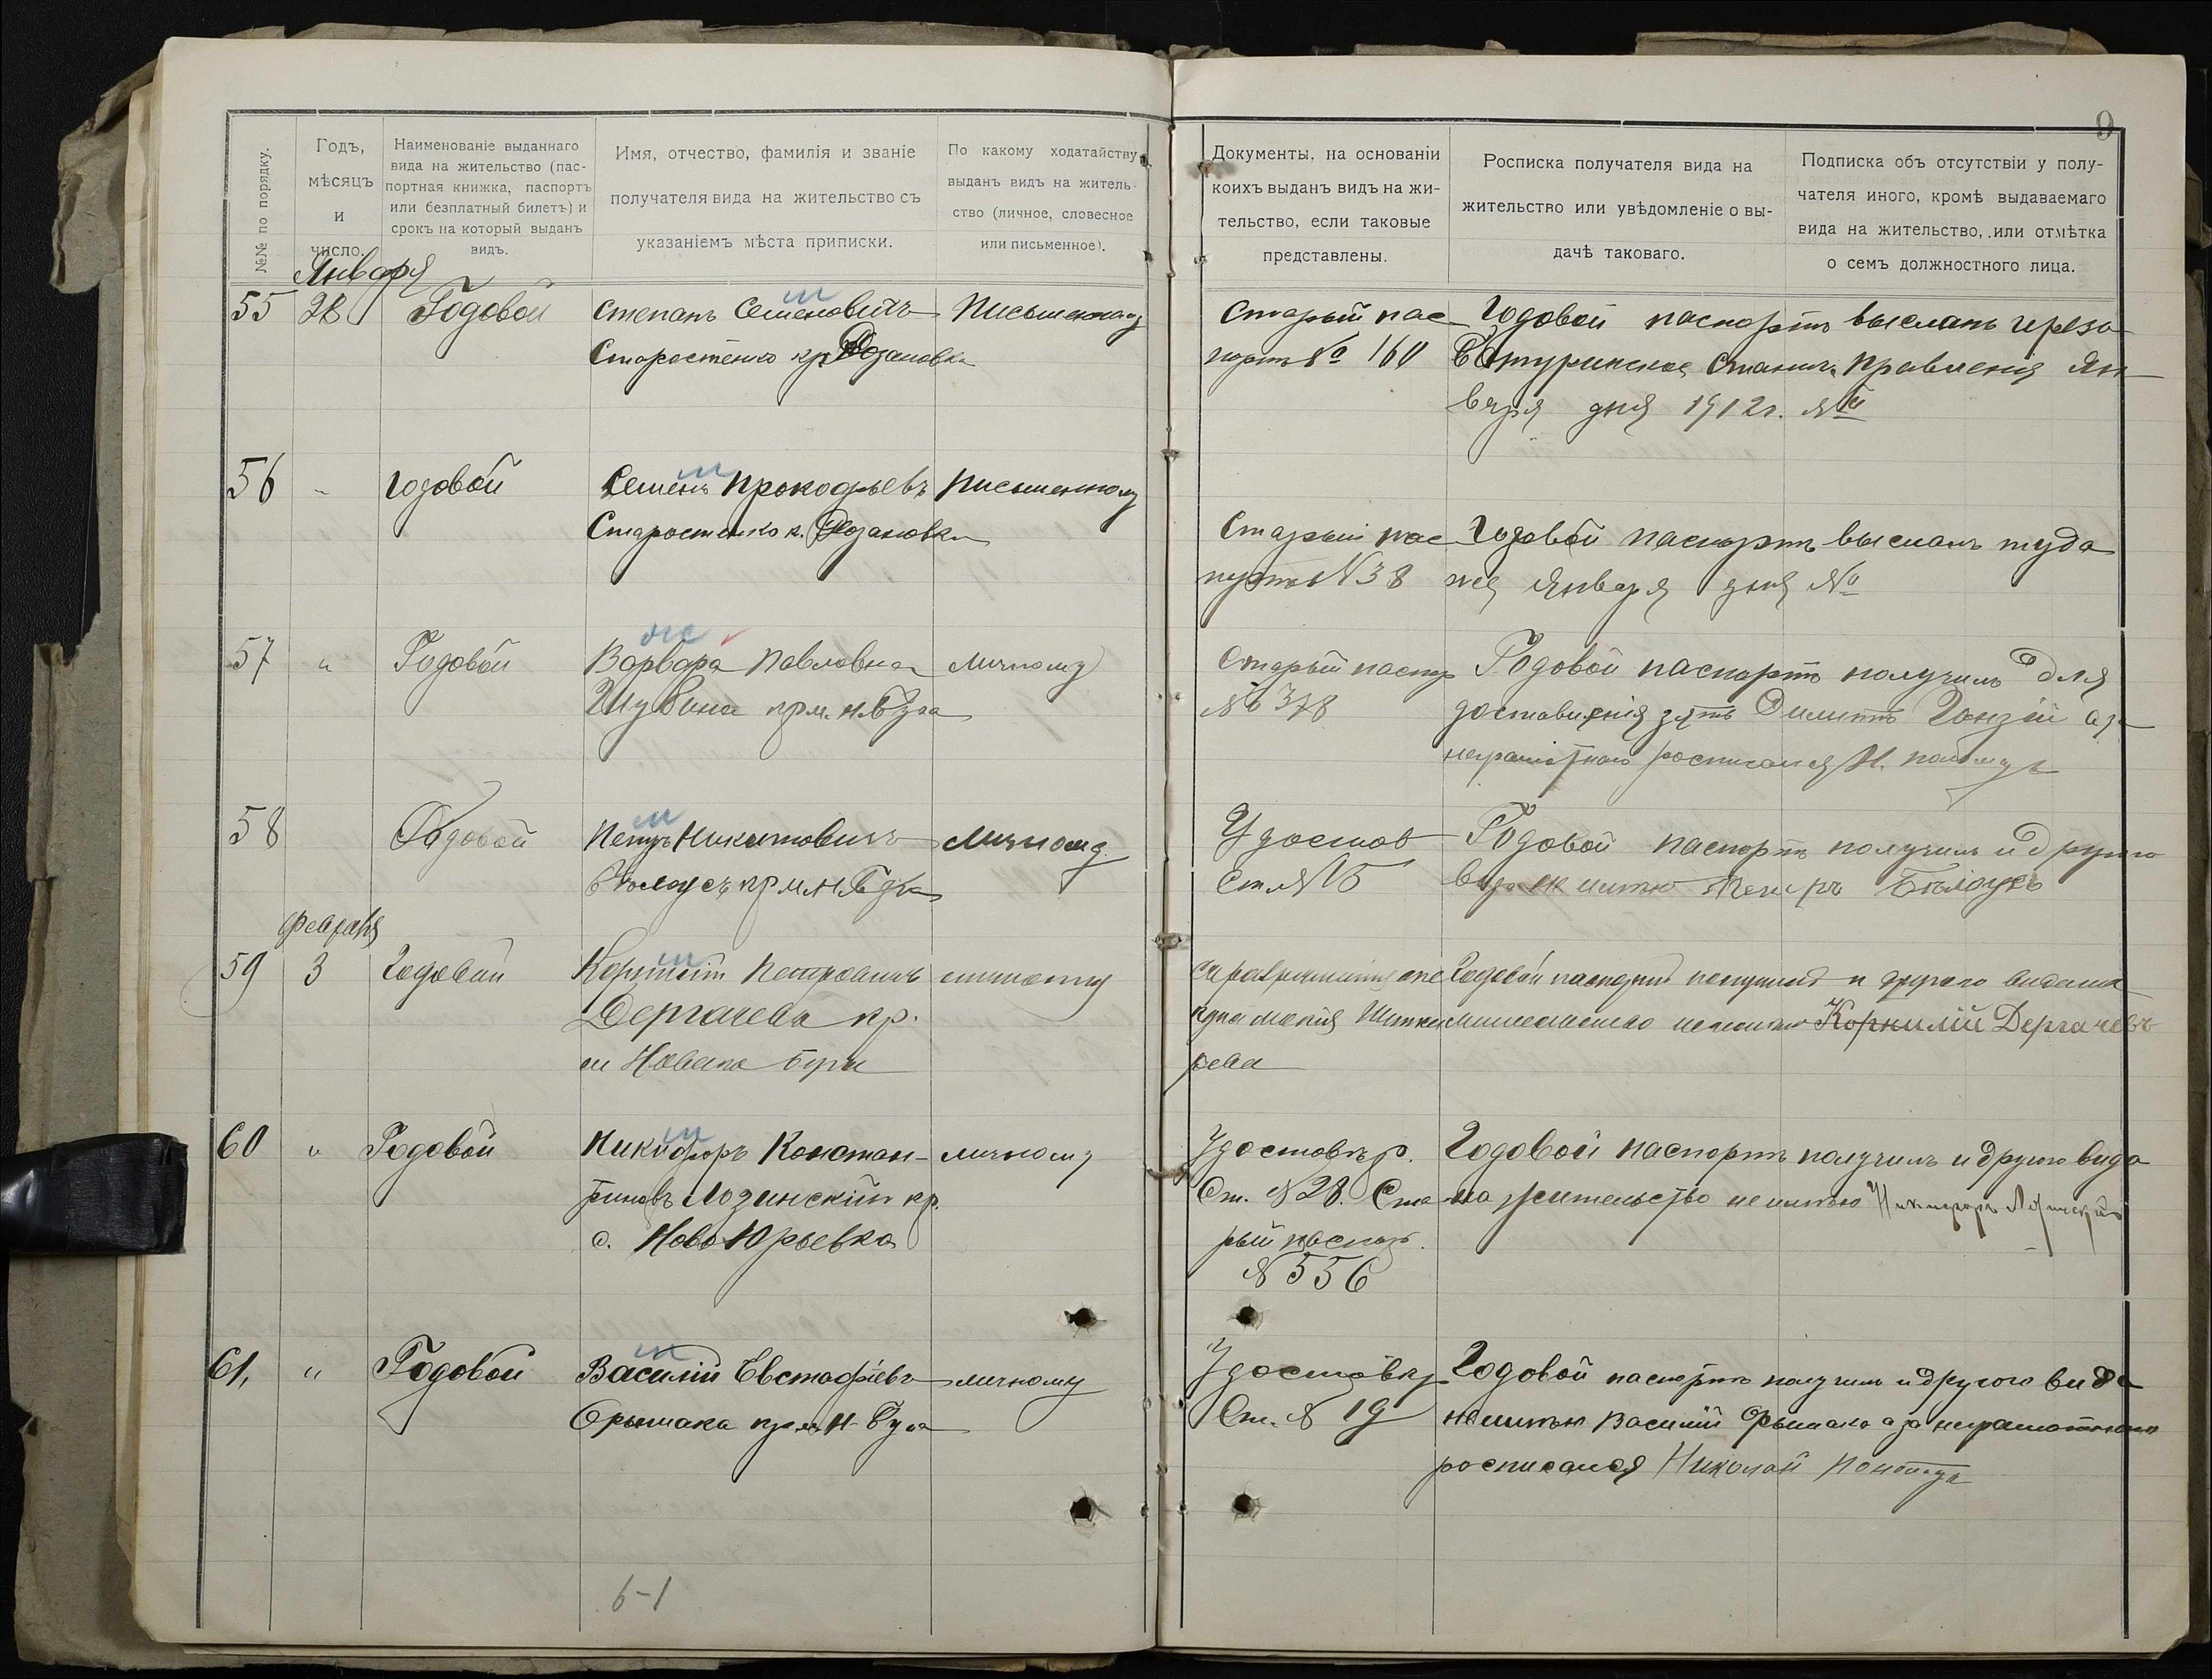 9
№№ по порядку.
Годъ,
мѣсяцъ
и
число.
Наименованіе выданнаго
вида на жительство (пас-
портная книжка, паспортъ
или безплатный билетъ) и
срокъ на который выданъ
видъ.
Имя, отчество, фамилія и званіе
получателя вида на жительство съ
указаніемъ мѣста приписки.
По какому ходатайству
выданъ видъ на житель-
ство (личное, словесное
или письменное).
Документы, на основаніи
коихъ выданъ видъ на жи-
тельство, если таковые
представлены.
Росписка получателя вида на
жительство или увѣдомленіе о вы-
дачѣ таковаго.
Подписка объ отсутствіи у полу-
чателя иного, кромѣ выдаваемаго
вида на жительство, или отмѣтка
о семъ должностного лица.
Января
55 28 Годовой Степанъ Семеновичъ Письменному
Старостенко кр. Розановка
Старый пас
портъ № 160
Годовой паспортъ высланъ черезъ
Батуринское Станич. Правленія Ян
варя дня 1912 г. №
56 " Годовой Семенъ Прокофьевъ Письменному
Старостенко к. Розановка
Старый пас
портъ № 38
Годовой паспортъ высланъ туда
же Января дня №
57 " Годовой Варвара Павловна личному
прм. Н. Буга
Старый паспор
№ 378
Годовой паспортъ получилъ для
доставленія зять
неграмотнаго росписался Н.
58 Годовой Петръ Никитовичъ Личному
Бѣлоусъ пр м. Н. Буга
Удостов
Ст. № 15
Годовой паспортъ получилъ и другого
вида не имѣю Петръ Бѣлоусъ
Февраля
59 3 Годовой Петровичъ личному
Дергачева кр.
м Новаго Буга
рева
Годовой паспортъ получилъ и другого вида на
жительство не имѣю Корнилій Дергачевъ
60 " Годовой Никифоръ Констан- личному
тиновъ Лозинскій кр.
с. Ново Юрьевка
Удостовѣр.
Ст. № 28. Ста
рый паспор.
№ 556
Годовой паспортъ получилъ и другого вида
на жительство не имѣю Никифоръ Лозинскій
61, " Годовой Василій Евстафіевъ личному
прм. Н. Буга
Удостовѣр
Ст. № 19
Годовой паспортъ получилъ и другого вида
не имѣю Василій а за неграмотнаго
росписался Николай
6-1